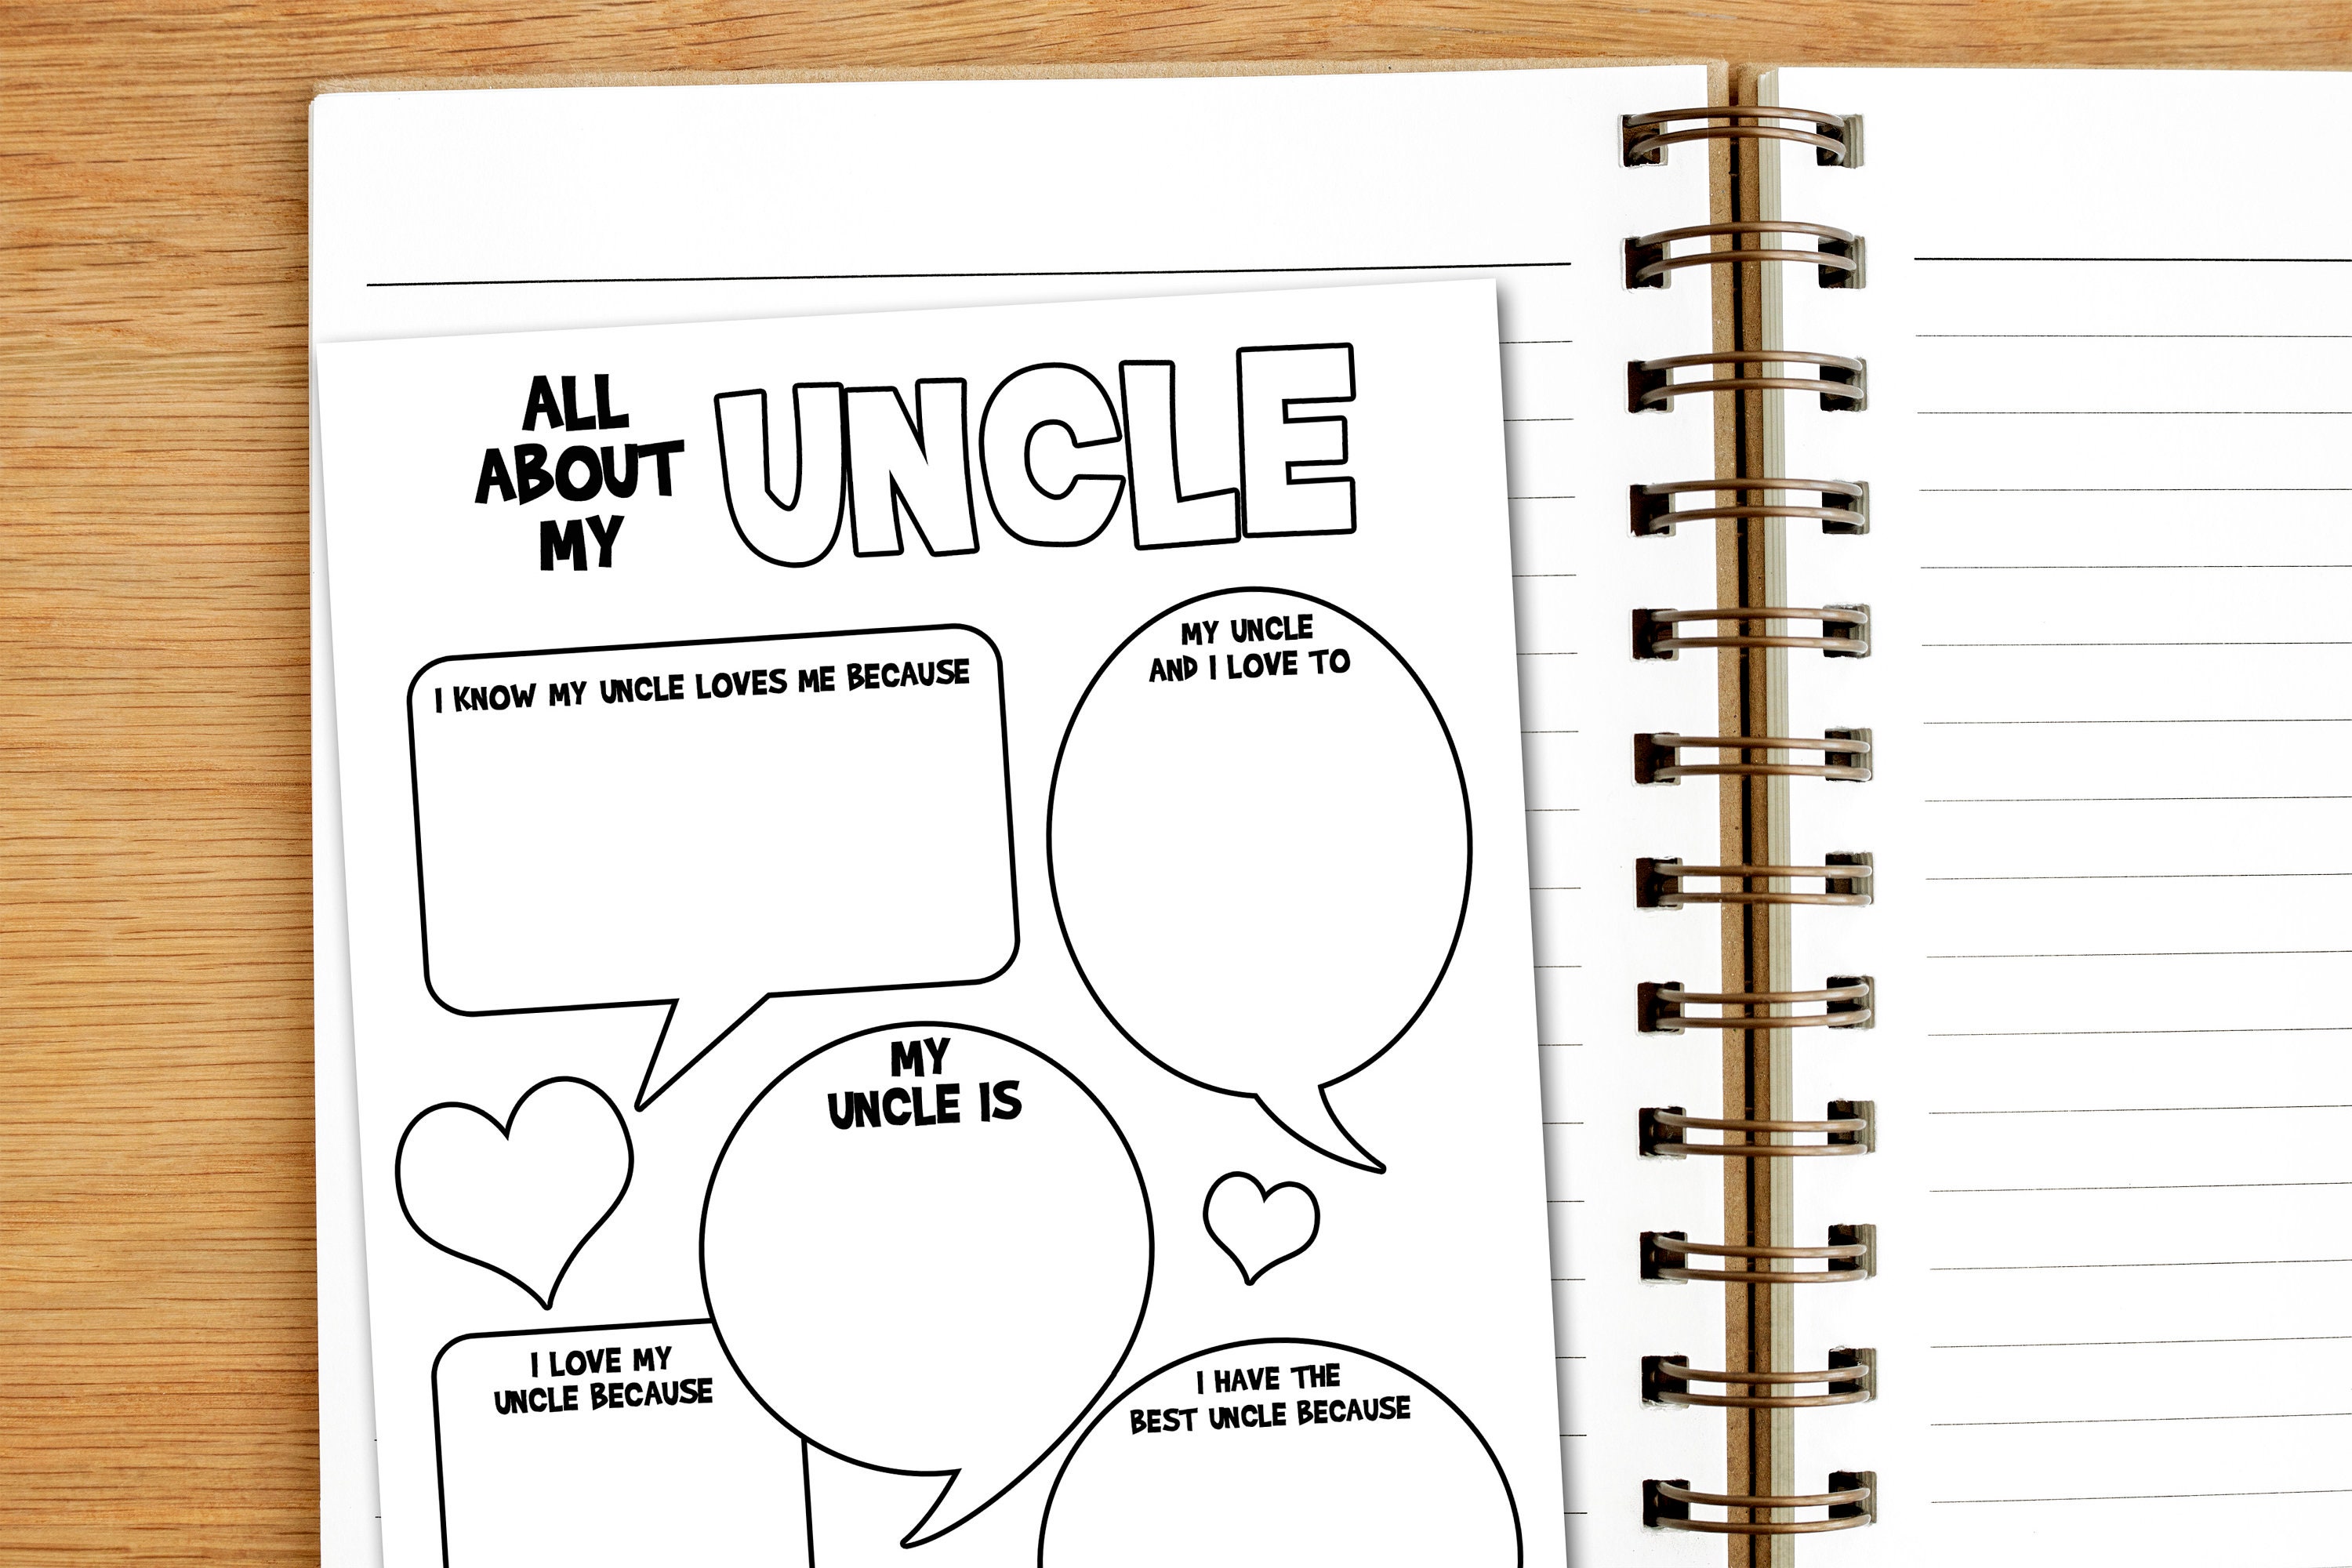 ALL
ABOUT
MY
UNCLE
I KNOW MY UNCLE LOVES ME BECAUSE
MY UNCLE
AND I LOVE TO
MY
UNCLE IS
I LOVE MY
UNCLE BECAUSE
I HAVE THE
BEST UNCLE BECAUSE